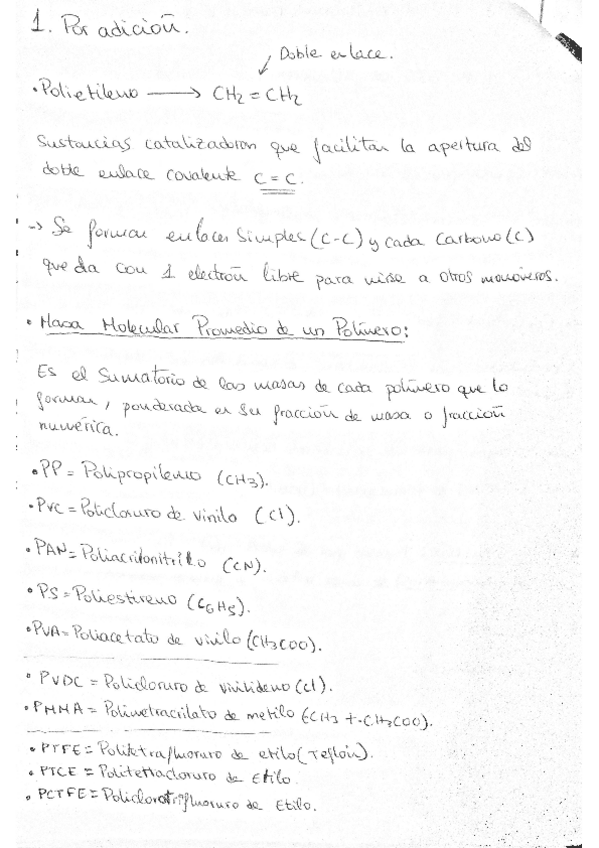 1. Por adición.
Doble enlace.
• Polietileno → CH2 = CH2
Sustancias catalizadoras que facilitan la apertura del
doble enlace covalente C = C.
-> Se forman enlaces simples (C-C) y cada Carbono (C)
queda con 1 electrón libre para unirse a otros monómeros.
• Masa Molecular Promedio de un Polímero:
Es el Sumatorio de las masas de cada polímero que lo
forman, ponderada en su fracción de masa o fracción
numérica.
• PP = Polipropileno (CH3).
• PVC = Policloruro de vinilo (Cl).
• PAN = Poliacrilonitrilo (CN).
• PS = Poliestireno (C6H5).
• PVA = Poliacetato de vinilo (CH3COO).
• PVDC = Policloruro de vinilideno (Cl).
• PMMA = Polimetracrilato de metilo (CH3 + CH3COO).
• PTFE = Politetrafluoruro de etilo (Teflón).
• PTCE = Politetracloruro de Etilo.
• PCTFE = Policlorotrifluoruro de Etilo.